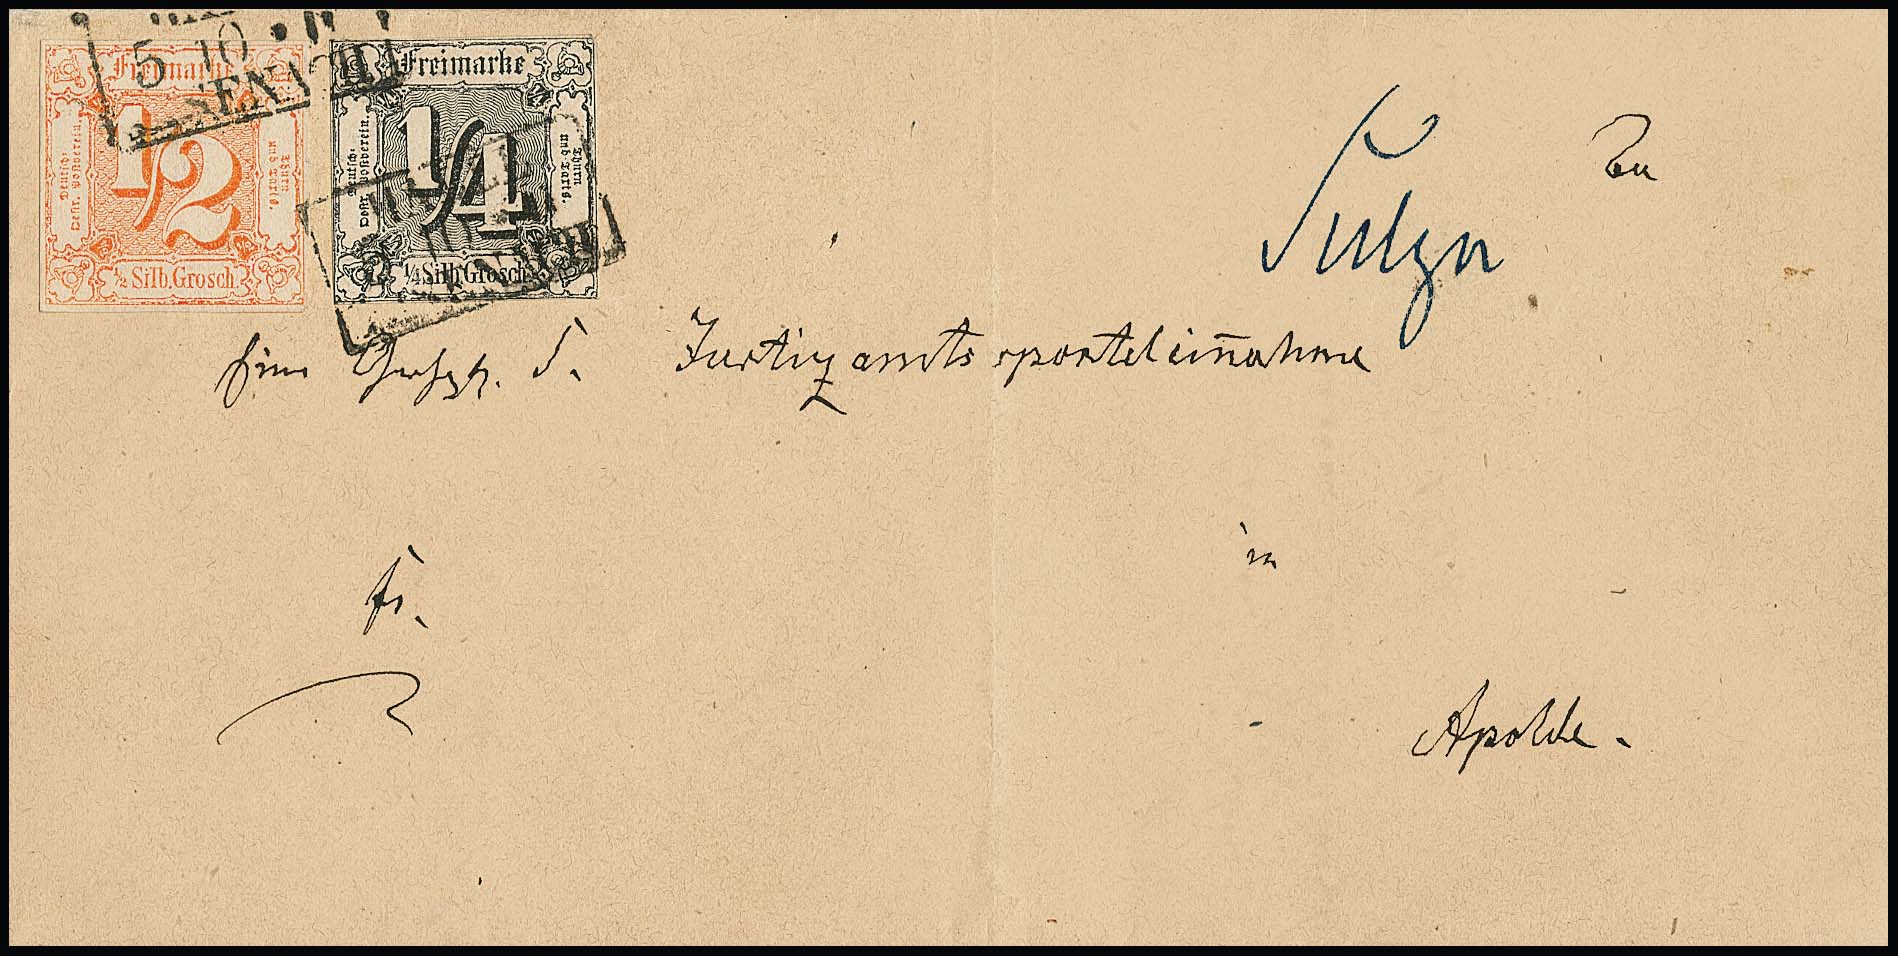 5 10
Freimarke
1/2
Deutsch-
Oestr. Postverein.
Thurn
und Taxis.
1/2 Silb. Grosch.
Freimarke
1/4
Deutsch-
Oestr. Postverein.
Thurn
und Taxis.
1/4 Silb. Grosch.
Sulza
An
S. Justizamtssporteleinnahme
fr.
in
Apolda.